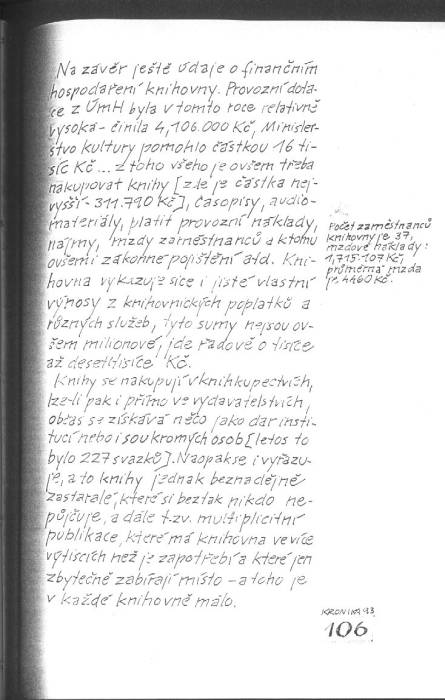 Na závěr ještě údaje o finančním
hospodaření knihovny. Provozní dota-
ce z ÚmH byla v tomto roce relativně
vysoká - činila 4,106.000 Kč, Minister-
stvo kultury pomohlo částkou 16 ti-
síc Kč... z toho všeho je ovšem třeba
nakupovat knihy [zde je částka nej-
vyšší - 311.790 Kč], časopisy, audio-
materiály, platit provozní náklady,
nájmy, mzdy zaměstnanců a k tomu
ovšem i zákonné pojištění atd. Kni-
hovna vykazuje sice i jisté vlastní
výnosy z knihovnických poplatků a
různých služeb, tyto sumy nejsou ov-
šem milionové, jde řádově o tisíce
až desetitisíce Kč.
Knihy se nakupují v knihkupectvích,
lze-li pak i přímo ve vydavatelstvích,
občas se získává něco jako dar insti-
tucí nebo i soukromých osob [letos to
bylo 227 svazků]. Naopak se i vyřazu-
je, a to knihy jednak beznadějně
zastaralé, které si beztak nikdo ne-
půjčuje, a dále t.zv. multiplicitní
publikace, které má knihovna ve více
výtiscích než je zapotřebí a které jen
zbytečně zabírají místo - a toho je
v každé knihovně málo.
Počet zaměstnanců
knihovny je 37,
mzdové náklady:
1,715.107 Kč,
průměrná mzda
je 4460 Kč.
KRONIKA 93
106